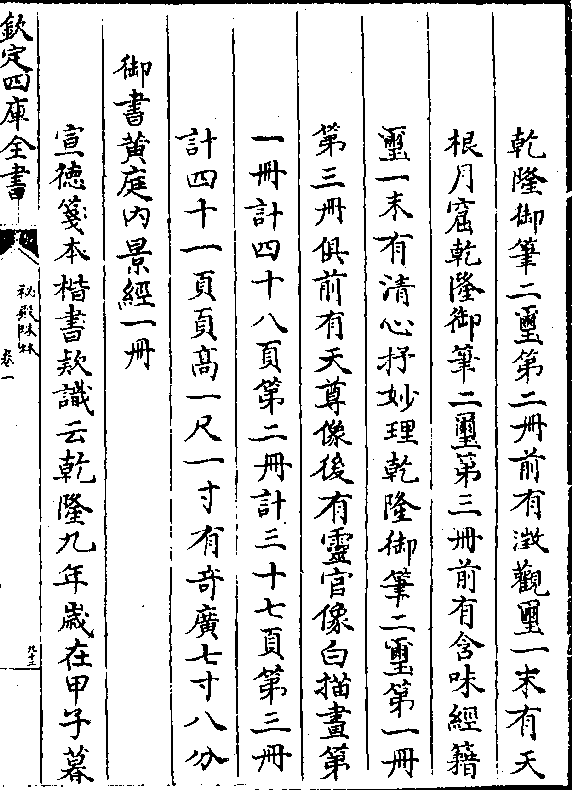 乾隆御筆二璽第二册前有澂觀璽一末有天
根月窟乾隆御筆二璽第三册前有含味經籍
璽一末有清心抒妙理乾隆御筆二璽第一册
第三册俱前有天尊像後有靈官像白描畫第
一册計四十八頁第二册計三十七頁第三册
計四十一頁頁高一尺一寸有奇廣七寸八分
御書黄庭内景經一册
宣德箋本楷書欵識云乾隆九年嵗在甲子暮
欽定四庫全書
秘殿珠林
卷一
九十三